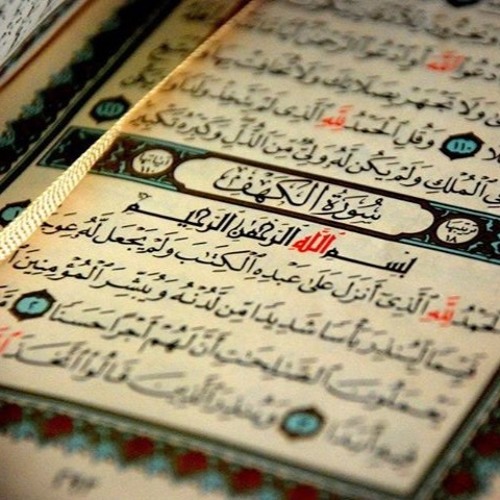 الله
ولا تجهر بصلاتك ولا تخافت
وقل الحمد لله الذي لم يتخذ ولدا
الملك ولم يكن له ولي من الذل وكبره تكبيرا
سُورَةُ الكَهْفِ
بِسْمِ اللَّهِ الرَّحْمَٰنِ الرَّحِيمِ
الْحَمْدُ لِلَّهِ الَّذِي أَنزَلَ عَلَىٰ عَبْدِهِ الْكِتَابَ وَلَمْ يَجْعَل لَّهُ عِوَجًا
قَيِّمًا لِّيُنذِرَ بَأْسًا شَدِيدًا مِّن لَّدُنْهُ وَيُبَشِّرَ الْمُؤْمِنِينَ
يَعْمَلُونَ الصَّالِحَاتِ أَنَّ لَهُمْ أَجْرًا حَسَنًا ٢
فِيهِ أَبَدًا ٣ وَيُنذِرَ الَّذِينَ قَالُوا اتَّخَذَ